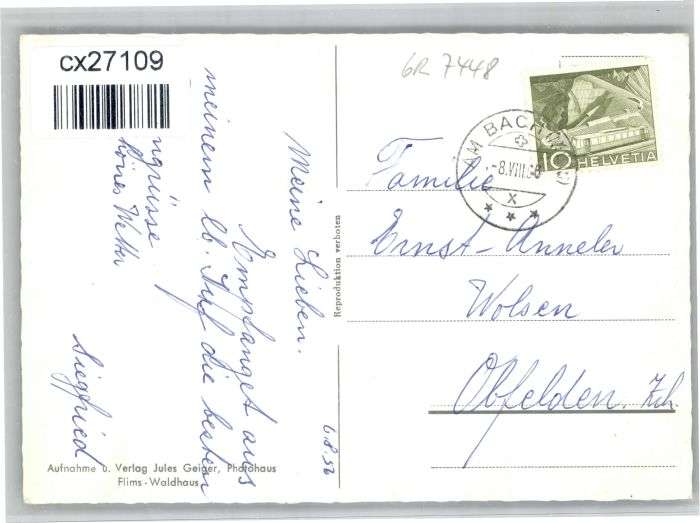 cx27109
GR 7448
10 HELVETIA
AM BACH
-8.VIII.
X
Meine Lieben.
Empfanget aus
meinem lb. die besten
ngrüsse
hönes Wetter
Siegfried
6.8.52
Reproduktion verboten
Familie
Ernst-Anneler
Wolsen
Obfelden. Zch.
Aufnahme u. Verlag Jules Geiger, Photohaus
Flims-Waldhaus